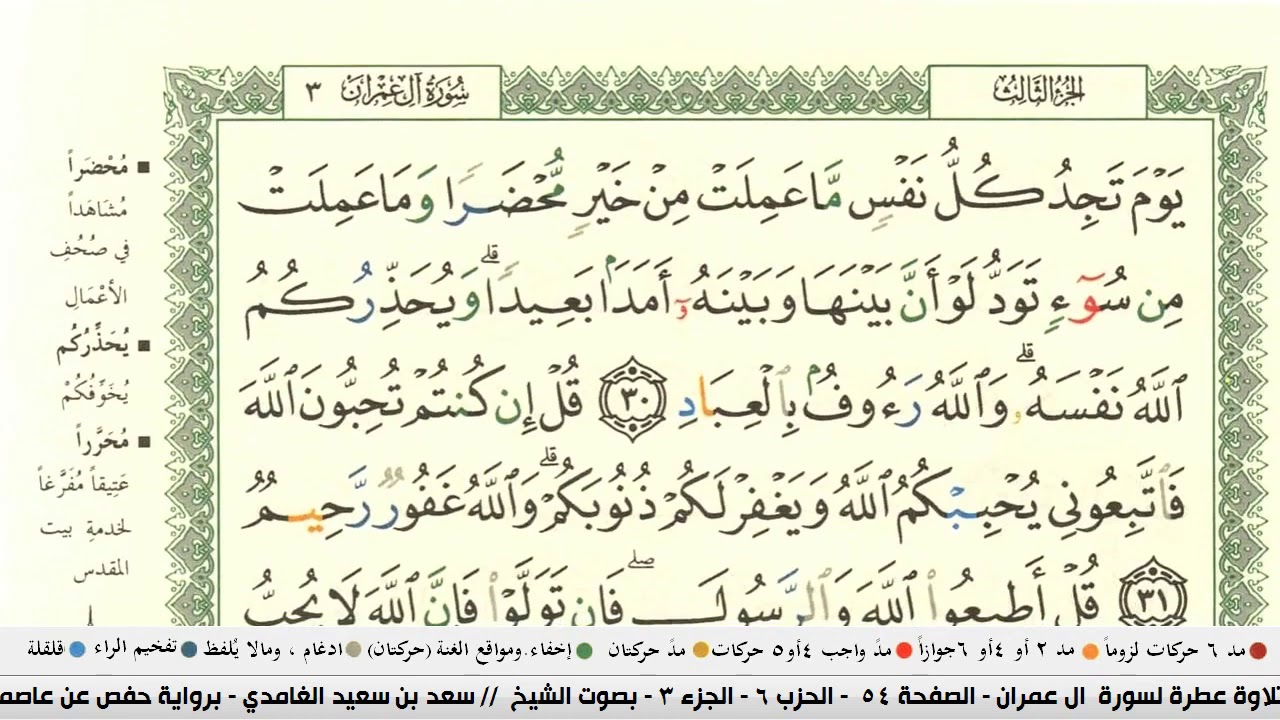 الجزء الثالث
سورة آل عمران ٣
يَوْمَ تَجِدُ كُلُّ نَفْسٍ مَّا عَمِلَتْ مِنْ خَيْرٍ مُّحْضَرًا وَمَا عَمِلَتْ
مِن سُوٓءٍ تَوَدُّ لَوْ أَنَّ بَيْنَهَا وَبَيْنَهُۥٓ أَمَدًۢا بَعِيدًا ۗ وَيُحَذِّرُكُمُ
ٱللَّهُ نَفْسَهُۥ ۗ وَٱللَّهُ رَءُوفٌۢ بِٱلْعِبَادِ ٣٠ قُلْ إِن كُنتُمْ تُحِبُّونَ ٱللَّهَ
فَٱتَّبِعُونِي يُحْبِبْكُمُ ٱللَّهُ وَيَغْفِرْ لَكُمْ ذُنُوبَكُمْ ۗ وَٱللَّهُ غَفُورٌ رَّحِيمٌ
٣١ قُلْ أَطِيعُوا۟ ٱللَّهَ وَٱلرَّسُولَ ۖ فَإِن تَوَلَّوْا۟ فَإِنَّ ٱللَّهَ لَا يُحِبُّ
■ مُحْضَراً
مُشَاهَداً
في صُحُفِ
الأَعْمَالِ
■ يُحَذِّرُكُم
يُخَوِّفُكُمْ
■ مُحَرَّراً
عَتِيقاً مُفَرَّغاً
لخدمةِ بيت
المقدس
مد ٦ حركات لزوماً مد ٢ أو ٤ أو ٦ جوازاً مدّ واجب ٤ أو ٥ حركات مدّ حركتان إخفاء، ومواقع الغنة (حركتان) ادغام ، ومالا يُلفظ تفخيم الراء قلقلة
تلاوة عطرة لسورة ال عمران - الصفحة ٥٤ - الحزب ٦ - الجزء ٣ - بصوت الشيخ // سعد بن سعيد الغامدي - برواية حفص عن عاصم